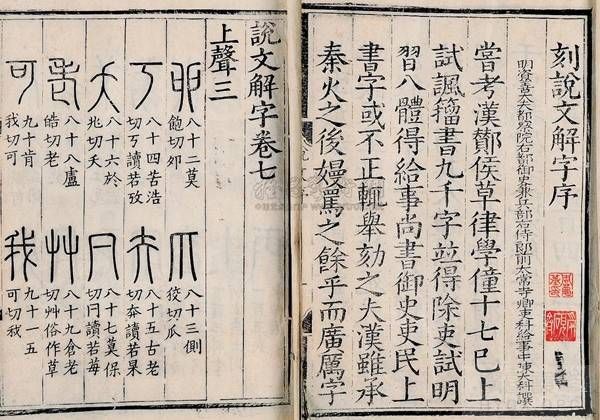 刻說文解字序
明資善大夫都察院右都御史兼兵部右侍郎前太常寺卿吏科給事中陳大科譔
嘗考漢酇侯草律學僮十七已上
試諷籀書九千字並得除吏試明
習八體得給事尚書御史吏民上
書字或不正輒舉劾之夫漢雖承
秦火之後嫚罵之餘乎而廣厲字
說文解字卷七
上聲三
卯 八十二莫飽切夘 爪 八十三側狡切瓜
丂 八十四苦浩切丂讀若攷 夰 八十五古老切夰讀若杲
夭 八十六於兆切夭 冃 八十七莫保切冃讀若
老 八十八盧皓切老 艸 八十九倉老切艸俗作草
可 九十肯我切可 我 九十一五可切我